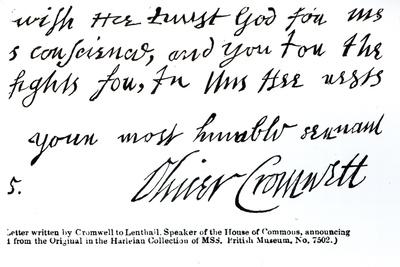 wish Hee trust God for me
s conscience, and you for the
fights for, In this Hee rests
your most humble servant
5. Oliver Cromwell
Letter written by Cromwell to Lenthall, Speaker of the House of Commons, announcing
1 from the Original in the Harleian Collection of MSS. British Museum, No. 7502.)